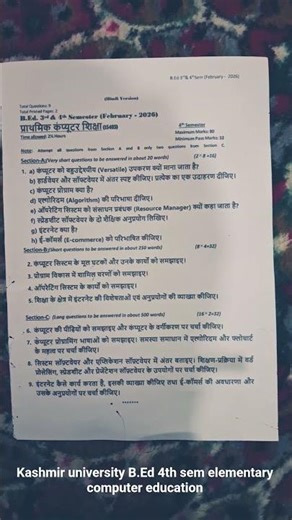 B.Ed 3rd & 4thSem (February - 2026)
(Hindi Version)
Total Questions: 9
Total Printed Pages: 2
B.Ed. 3rd & 4th Semester (February - 2026)
प्राथमिक कंप्यूटर शिक्षा
4th Semester
Time allowed: 2½ Hours
Maximum Marks: 80
Minimum Pass Marks: 32
Note: Attempt all questions from Section A and B only two questions from Section C.
Section-A: (Very short questions to be answered in about 20 words) (2 * 8 =16)
1. a) कंप्यूटर को बहुउद्देशीय (Versatile) उपकरण क्यों माना जाता है?
b) हार्डवेयर और सॉफ्टवेयर में अंतर स्पष्ट कीजिए। प्रत्येक का एक उदाहरण दीजिए।
c) कंप्यूटर प्रोग्राम क्या है?
d) एल्गोरिदम (Algorithm) की परिभाषा दीजिए।
e) ऑपरेटिंग सिस्टम को संसाधन प्रबंधक (Resource Manager) क्यों कहा जाता है?
f) स्प्रेडशीट सॉफ्टवेयर के दो शैक्षिक अनुप्रयोग लिखिए।
g) इंटरनेट क्या है?
h) ई-कॉमर्स (E-commerce) को परिभाषित कीजिए।
Section-B: (Short questions to be answered in about 250 words) (8 * 4=32)
2. कंप्यूटर सिस्टम के मूल घटकों और उनके कार्यों को समझाइए।
3. प्रोग्राम विकास में शामिल चरणों को समझाइए।
4. ऑपरेटिंग सिस्टम के कार्यों को समझाइए।
5. शिक्षा के क्षेत्र में इंटरनेट की विशेषताओं एवं अनुप्रयोगों की व्याख्या कीजिए।
Section-C: (Long questions to be answered in about 500 words) (16 * 2=32)
6. कंप्यूटर की पीढ़ियों को समझाइए और कंप्यूटर के वर्गीकरण पर चर्चा कीजिए।
7. कंप्यूटर प्रोग्रामिंग भाषाओं को समझाइए। समस्या समाधान में एल्गोरिदम और फ्लोचार्ट
के महत्व पर चर्चा कीजिए।
8. सिस्टम सॉफ़्टवेयर और एप्लिकेशन सॉफ़्टवेयर में अंतर बताइए। शिक्षण-प्रक्रिया में वर्ड
प्रोसेसिंग, स्प्रेडशीट और प्रेजेंटेशन सॉफ़्टवेयर के उपयोगों पर चर्चा कीजिए।
9. इंटरनेट कैसे कार्य करता है, इसकी व्याख्या कीजिए तथा ई-कॉमर्स की अवधारणा और
उसके अनुप्रयोगों पर चर्चा कीजिए।
*******
Kashmir university B.Ed 4th sem elementary
computer education